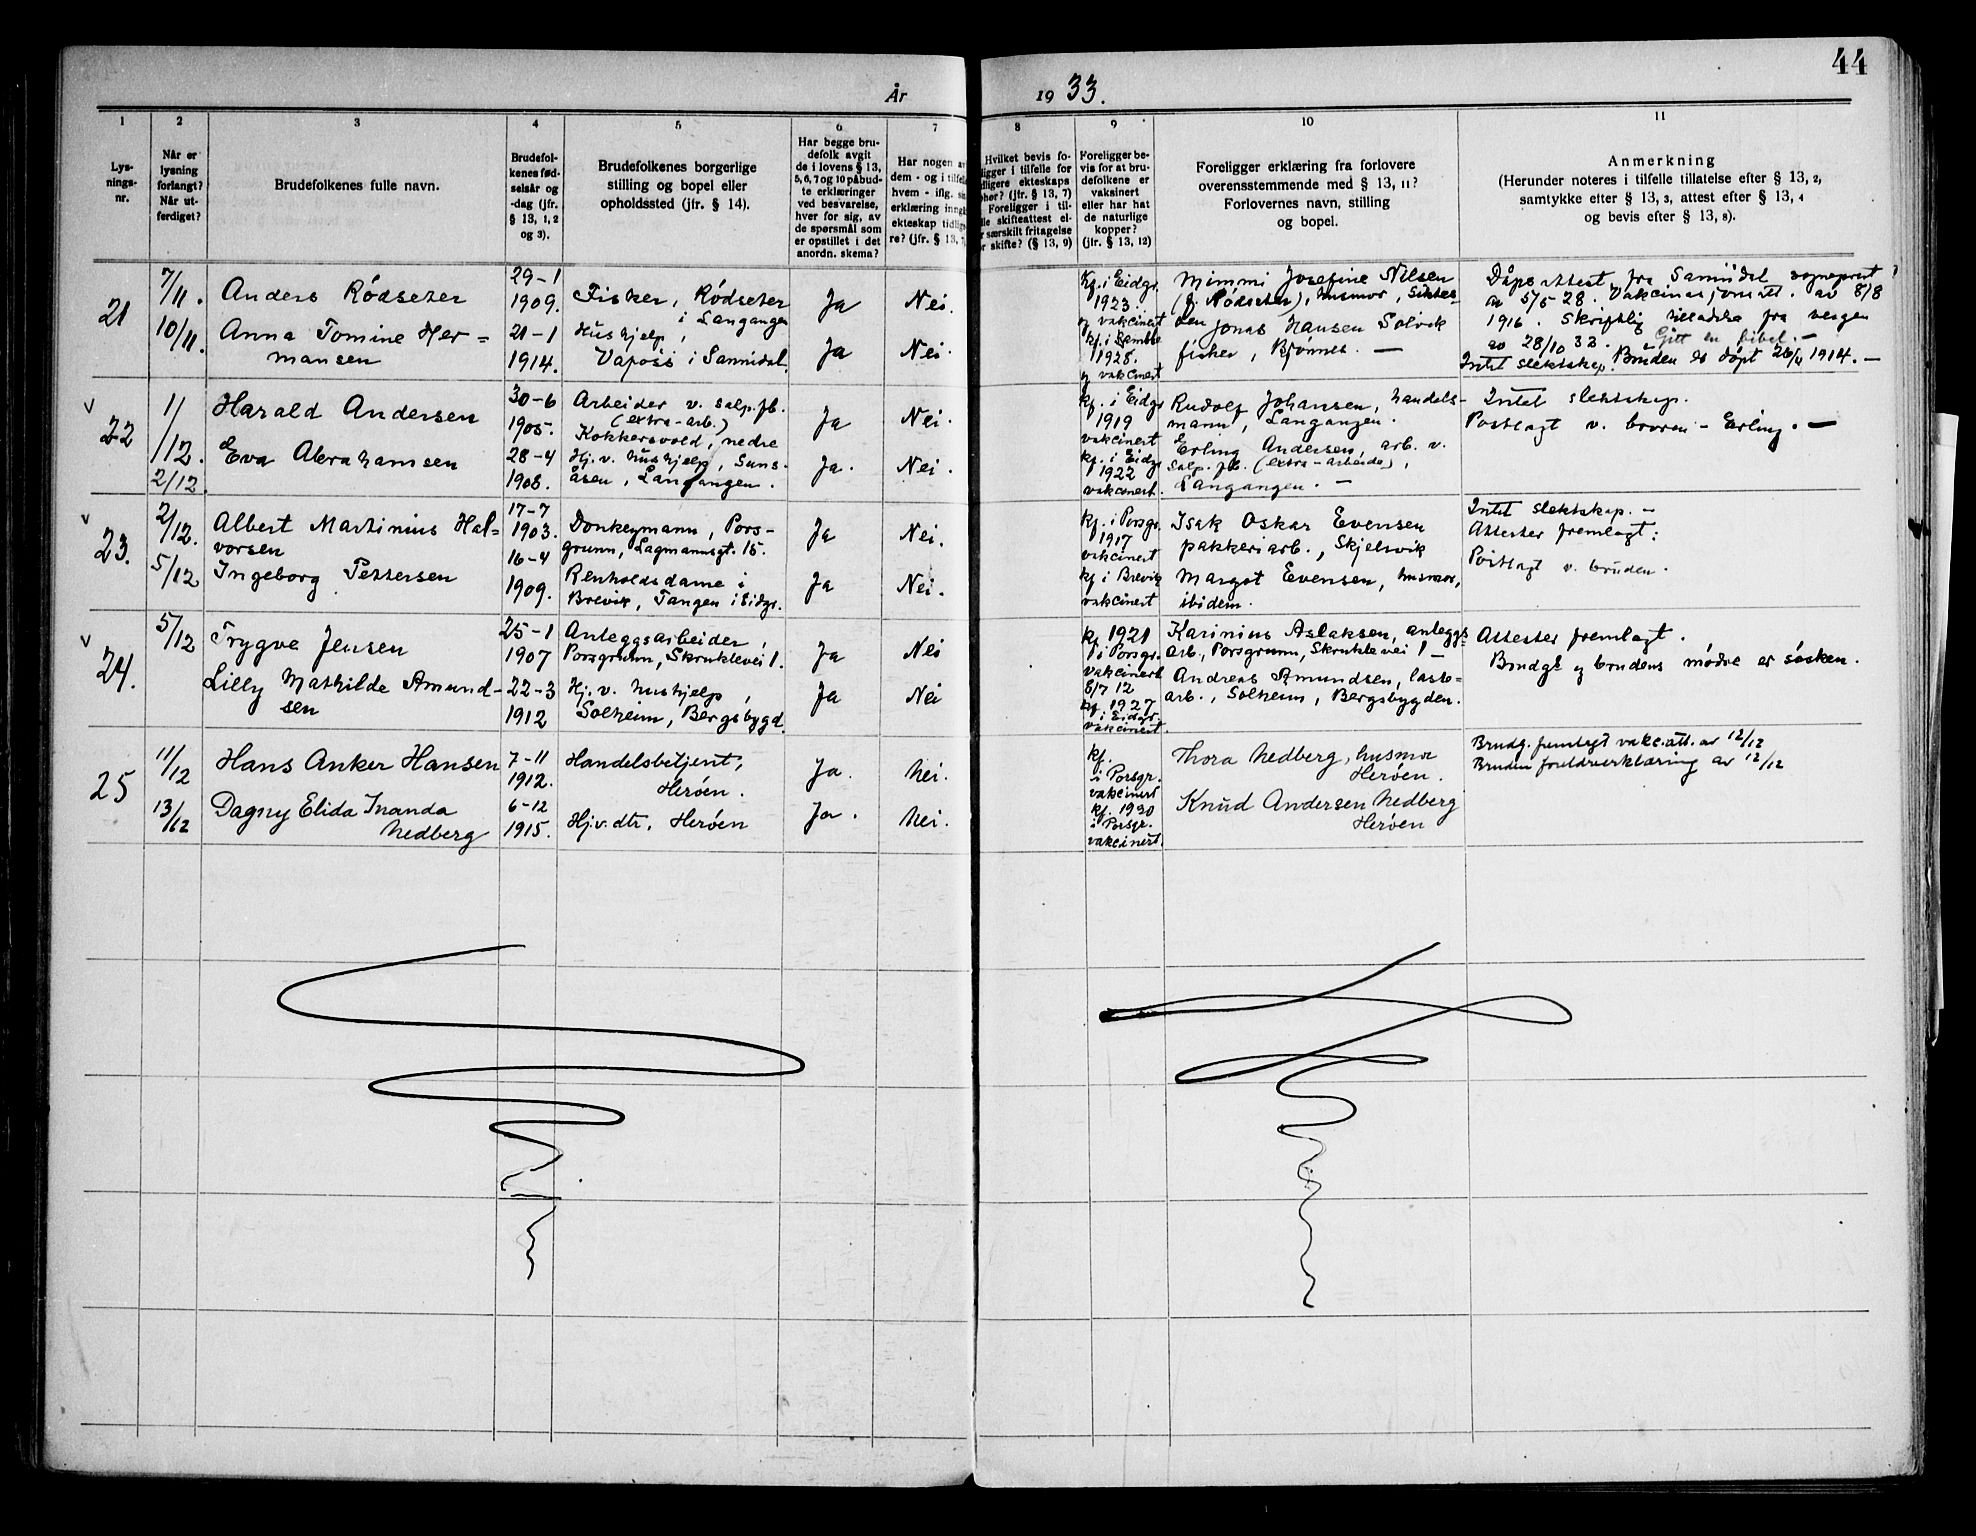 44
År 1933.
1 2 3 4 5 6 7 8 9 10 11
Lys-
nings-
nr.
Når er
lysning
forlangt?
Når ut-
ferdiget?
Brudefolkenes fulle navn.
Brudefol-
kenes fød-
selsår og
-dag (jfr.
§ 13, 1, 2
og 3).
Brudefolkenes borgerlige
stilling og bopel eller
opholdssted (jfr. § 14).
Har begge bru-
defolk avgit
de i lovens § 13,
5, 6, 7 og 10 påbud-
te erklæringer
ved besvarelse,
hver for sig, av
de spørsmål som
er opstillet i det
anordn. skema?
Har nogen av
dem - og i tilfell
hvem - iflg. sin
erklæring inngå
ekteskap tidlige
re? (jfr. § 13, 7
Hvilket bevis fo-
ligger i tilfelle for
dligere ekteskaps
phør? (jfr. § 13, 7)
Foreligger i til-
lle skifteattest el-
r særskilt fritagelse
or skifte? (§ 13, 9)
Foreligger be-
vis for at bru-
defolkene er
vaksinert
eller har hat
de naturlige
kopper?
(jfr. § 13, 12)
Foreligger erklæring fra forlovere
overensstemmende med § 13, 11?
Forlovernes navn, stilling
og bopel.
Anmerkning
(Herunder noteres i tilfelle tillatelse efter § 13, 2,
samtykke efter § 13, 3, attest efter § 13, 4
og bevis efter § 13, 8).
21
7/11.
10/11.
Anders Rödseter
Anna Tomine Her=
mansen
29-1
1909.
21-1
1914.
Fisker, Rödseter
i Langangen
Hushjelp,
Vaposs i Sannidal.
Ja
Ja
Nei.
Nei.
Kf. i Eidgr.
1923
og vakcinert
kf. i
1928.
og vakcinert
Mimmi Josefine Nilsen
(f. Rödseter), husmor,
Jonas Hansen Solvik
fisker, Bjönnes. —
Dåpsattest fra Sannidal sogneprest
av 5/5 28. Vakcinasjonsatt. av 8/8
1916. Skriftlig tilladelse fra vergen
av 28/10 33. Gitt en bibel. —
Intet slektskap. Bruden er döpt 26/4 1914. —
v
22
1/
/12.
2/12.
Harald Andersen
Eva Abrahamsen
30-6
1905.
28-4
1908.
Arbeider v. salp.fb.
(extra-arb.)
Kokkersvold, nedre
Hj. v. hushjelp, Suns-
åsen, Langangen.
Ja
Ja.
Nei.
Nei.
kf. i Eidgr
1919
vakcinert
kf. i Eidgr
1922
vakcinert.
Rudolf Johansen, handels-
mann, Langangen.
Erling Andersen, arb. v.
salp. fb. (extra-arbeide),
Langangen. —
Intet slektskap.
Postlagt v. broren - Erling. —
v
23.
2/12.
5/12
Albert Martinius Hal=
vorsen
Ingeborg Pettersen
17-7
1903.
16-4
1909.
Donkeymann, Pors-
grunn, Lagmannsgt. 15.
Renholdsdame i
Brevik, Tangen i Eidgr.
Ja
Ja
Nei.
Nei.
kf. i Porsgr.
1917
vakcinert
kf. i Brevik
vakcinert
Isak Oskar Evensen
pakkeriarb., Skjelsvik
Margot Evensen, husmor,
ibidem.
Intet slektskap. —
Attester fremlagt.
Postlagt v. bruden.
v
24.
5/12
Trygve Jensen
Lilly Mathilde Amund-
sen
25-1
1907
22-3
1912
Anleggsarbeider,
Porsgrunn, Skruklevei 1.
Hj. v. hushjelp,
Solheim, Bergsbygd.
Ja
Ja
Nei
Nei
kf 1921
i Porsgr.
vakcinert
8/7 12
kf. 1927
i Eidgr.
vakcinert.
Karinius Aslaksen, anleggs=
arb., Porsgrunn, Skruklevei 1 —
Andreas Amundsen, laste=
arb., Solheim, Bergsbygden.
Attester fremlagt.
Brudg. og brudens mödre er sösken.
25
11/12
13/12
Hans Anker Hansen
Dagny Elida Inanda
Nedberg
7-11
1912.
6-12
1915.
Handelsbetjent,
Heröen.
Hj.v.dtr, Heröen
Ja.
Ja.
Nei.
Nei.
kf.
i Porsgr.
vakcinert
kf. 1930
i Porsgr.
vakcinert.
Thora Nedberg, husmor
Heröen.
Knud Andersen Nedberg
Heröen
Brudg. fremlagt vakc.att. av 12/12
Bruden foreldreerklæring av 12/12